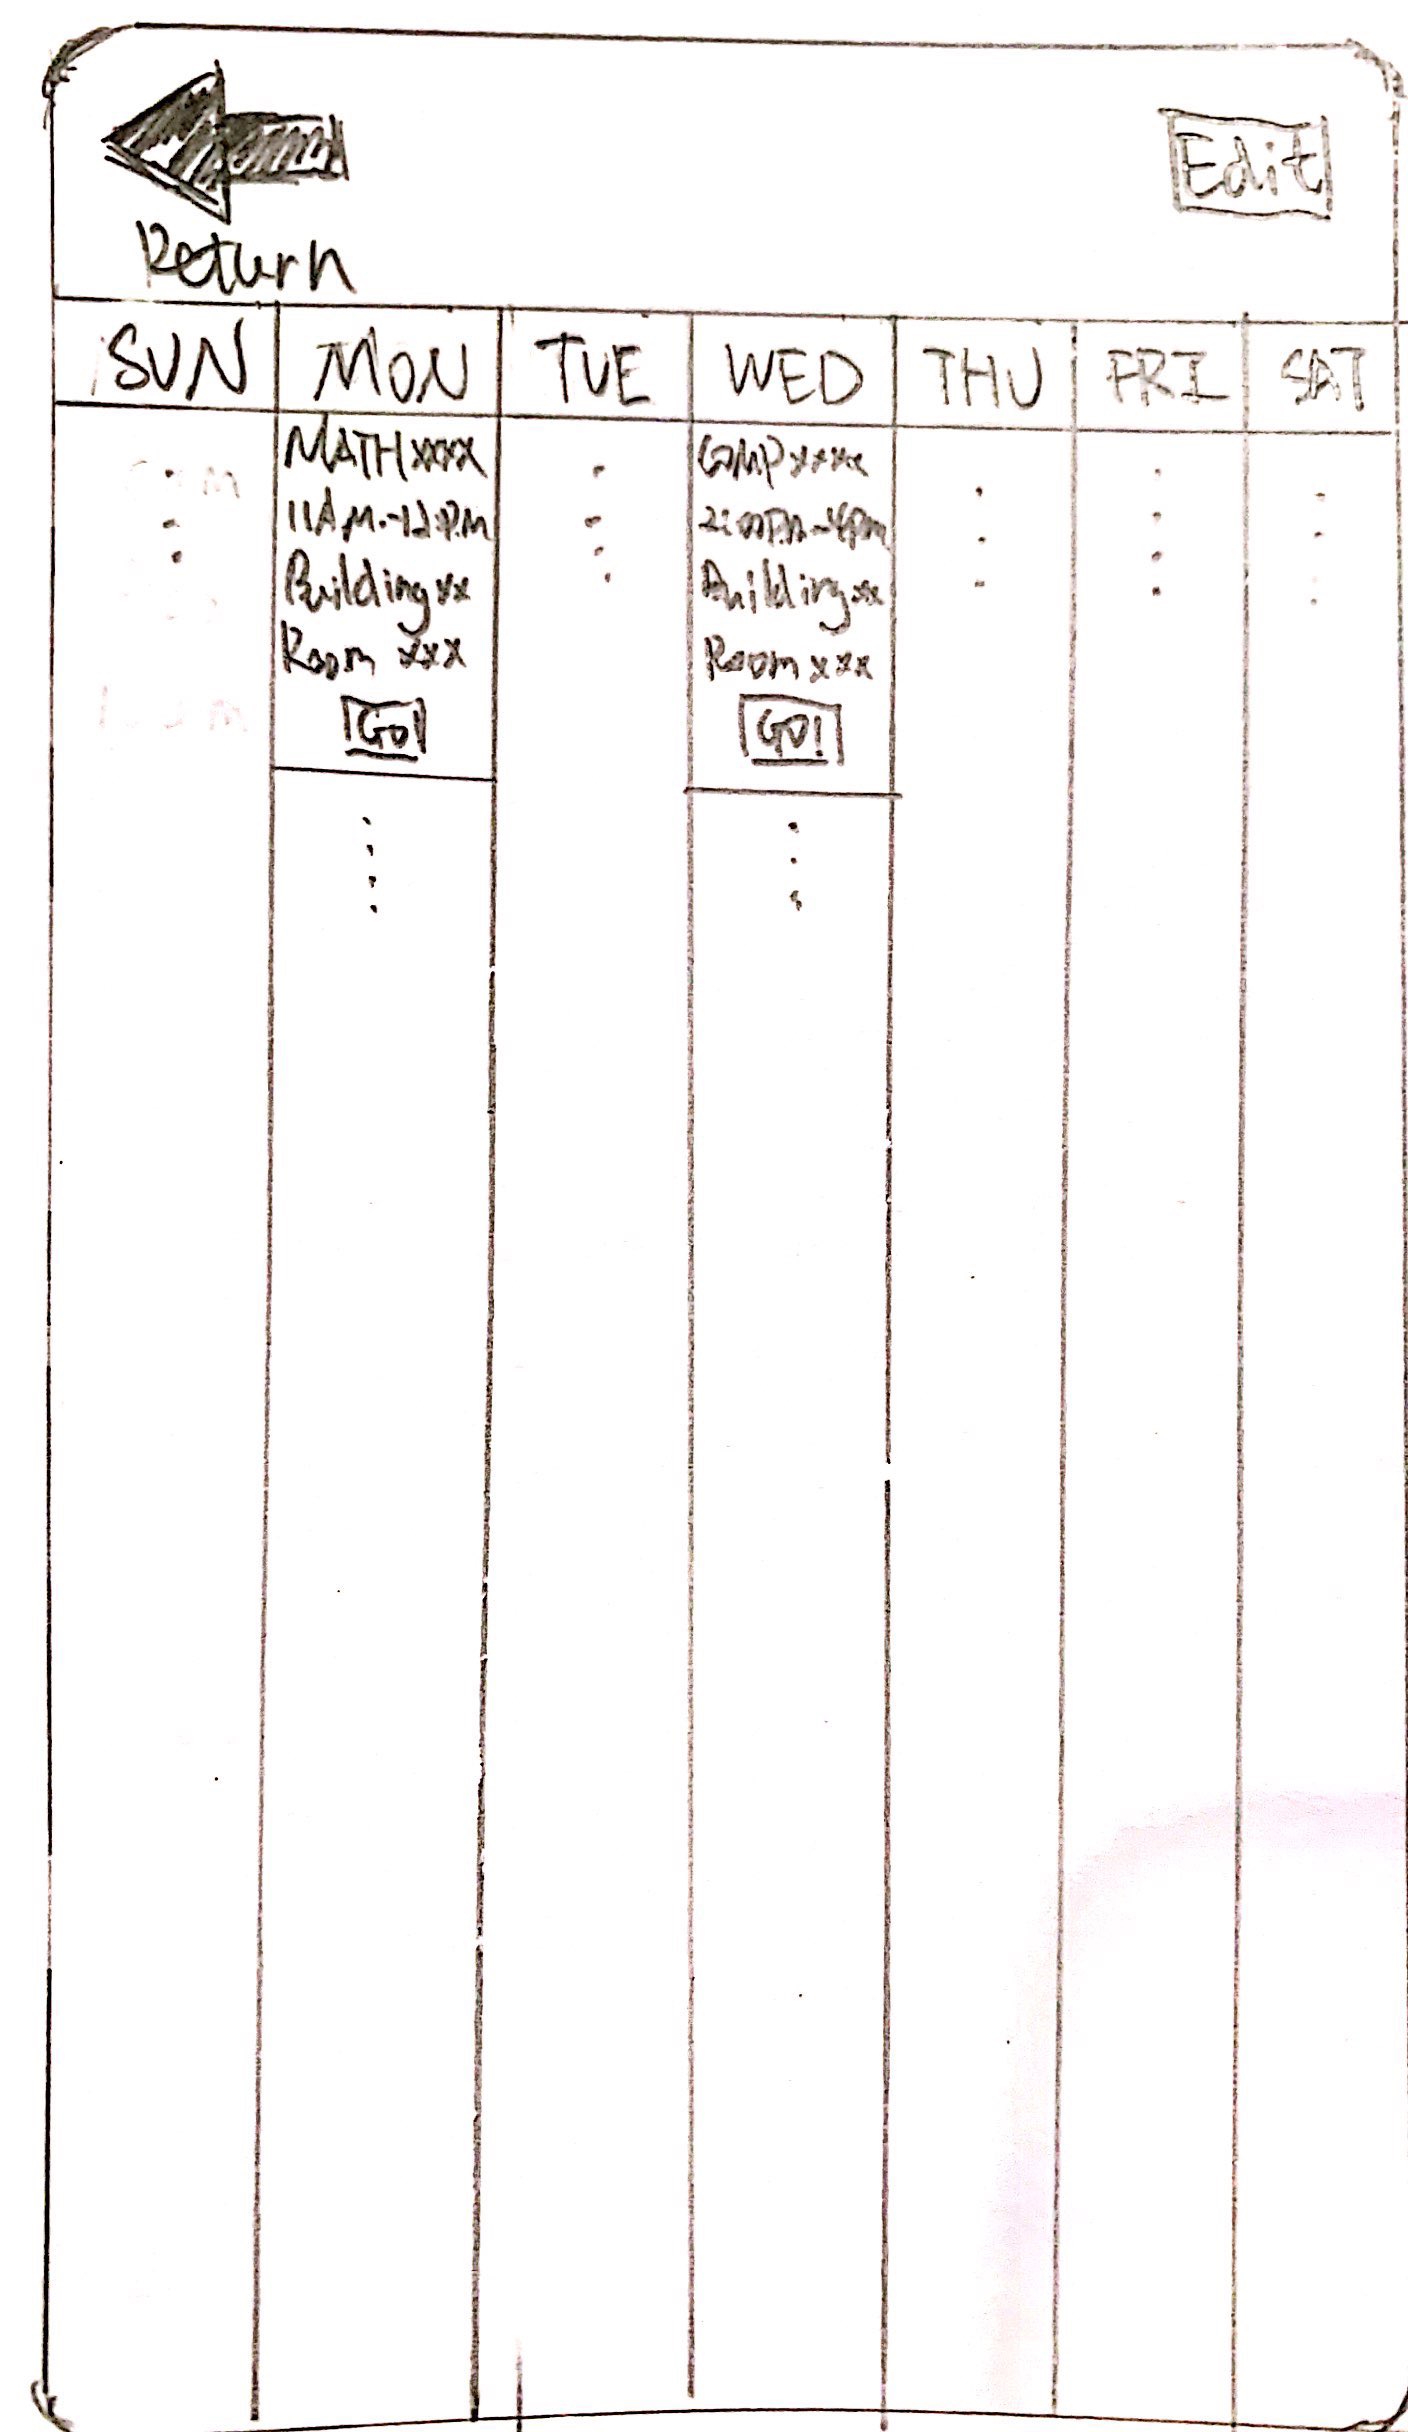 Return
Edit
SUN MON TUE WED THU FRI SAT
MATH xxxx
11AM.-12:P.M
Building xx
Room xxx
GO!
COMP xxxx
2:00P.M-4PM
Building xx
Room xxx
GO!